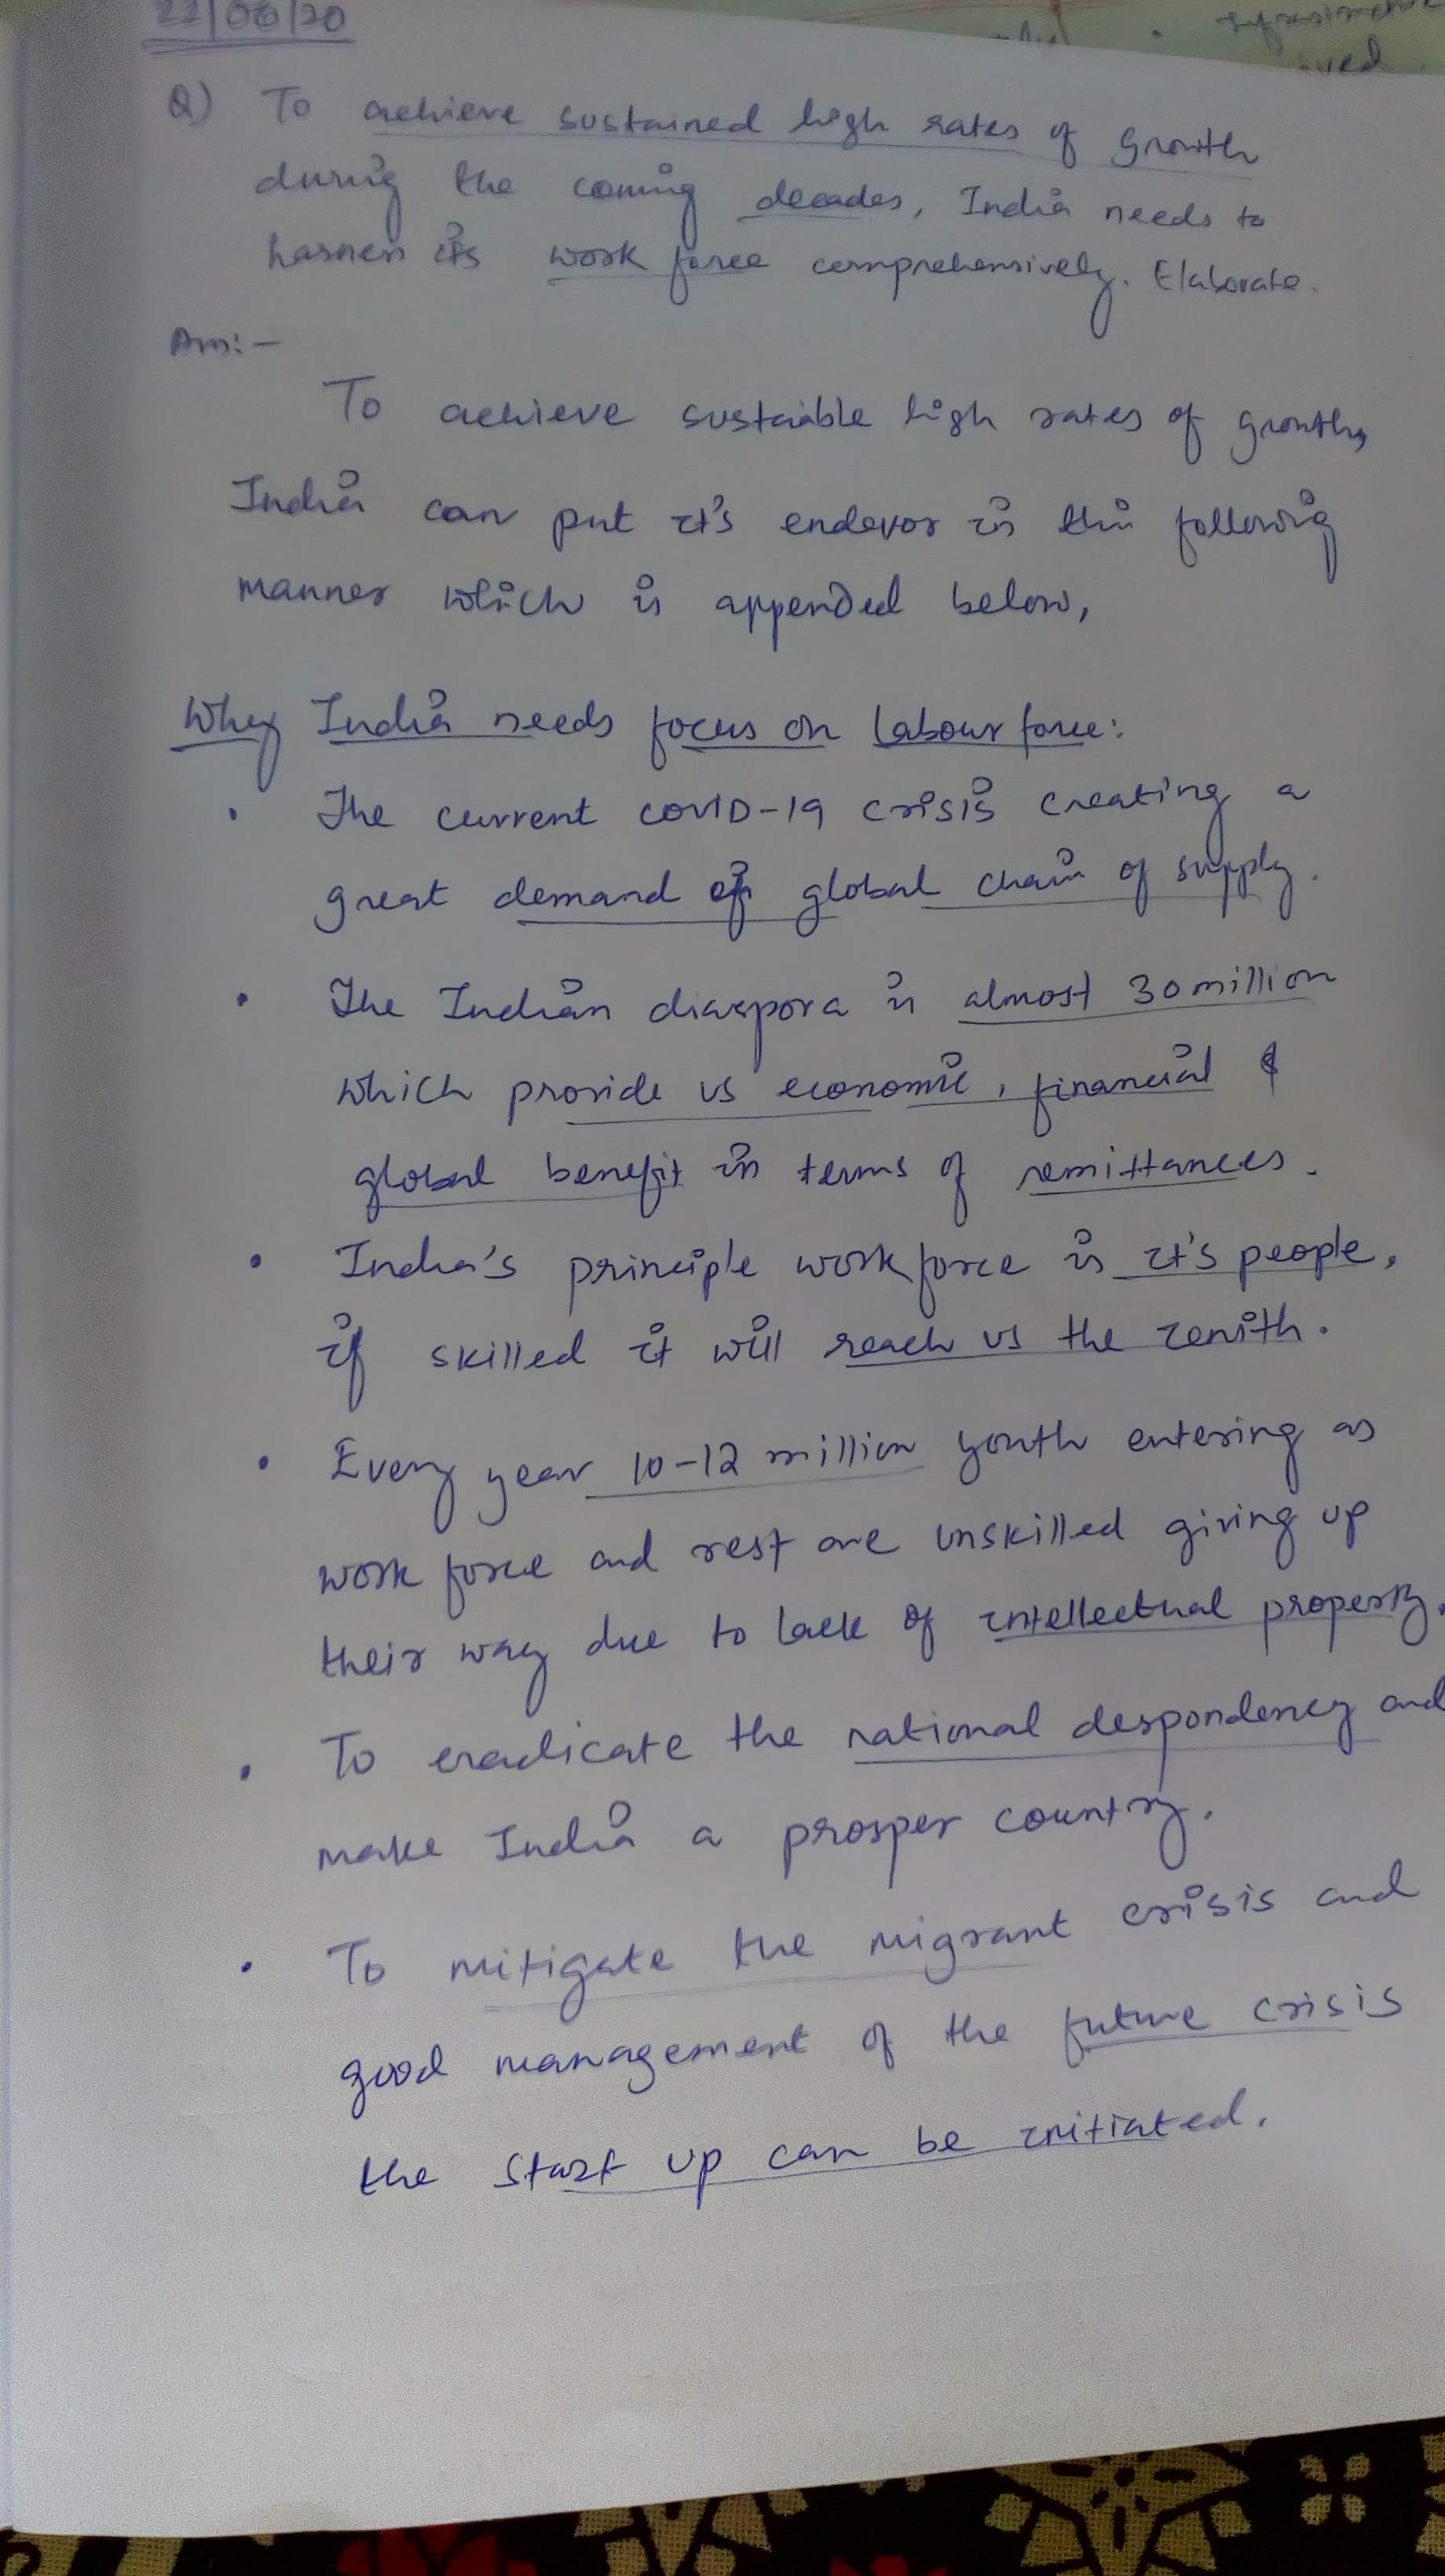 22/06/20
Infrastructure
Q) To achieve sustained high rates of growth
during the coming decades, India needs to
harness its work force comprehensively. Elaborate.
Ans:-
To achieve sustaible high rates of growth,
India can put it's endevor in this following
manner which is appended below,
Why India needs focus on Labour force:
• The current COVID-19 crisis creating a
great demand of global chain of supply.
• The Indian diaspora is almost 30 million
which provide us economic, financial &
global benefit in terms of remittances.
• India's principle workforce is it's people,
if skilled it will reach us the zenith.
• Every year 10-12 million youth entering as
work force and rest are unskilled giving up
their way due to lack of intellectual property.
• To eradicate the national despondency and
make India a prosper country.
• To mitigate the migrant crisis and
good management of the future crisis
the start up can be initiated.